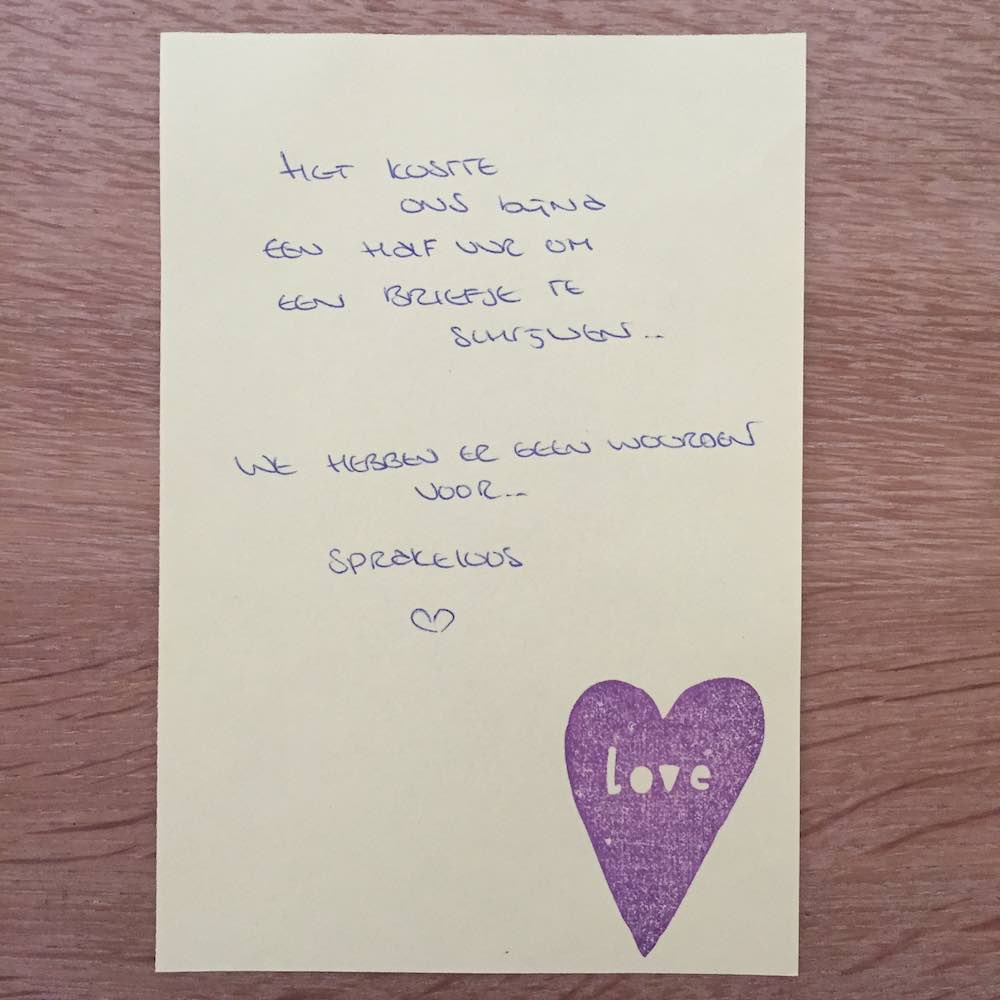 HET KOSTTE
ONS bijNA
EEN HALF UUR OM
EEN BRIEFJE TE
SCHRIJVEN..
WE HEBBEN ER GEEN WOORDEN
VOOR...
SPRAKELOOS
love